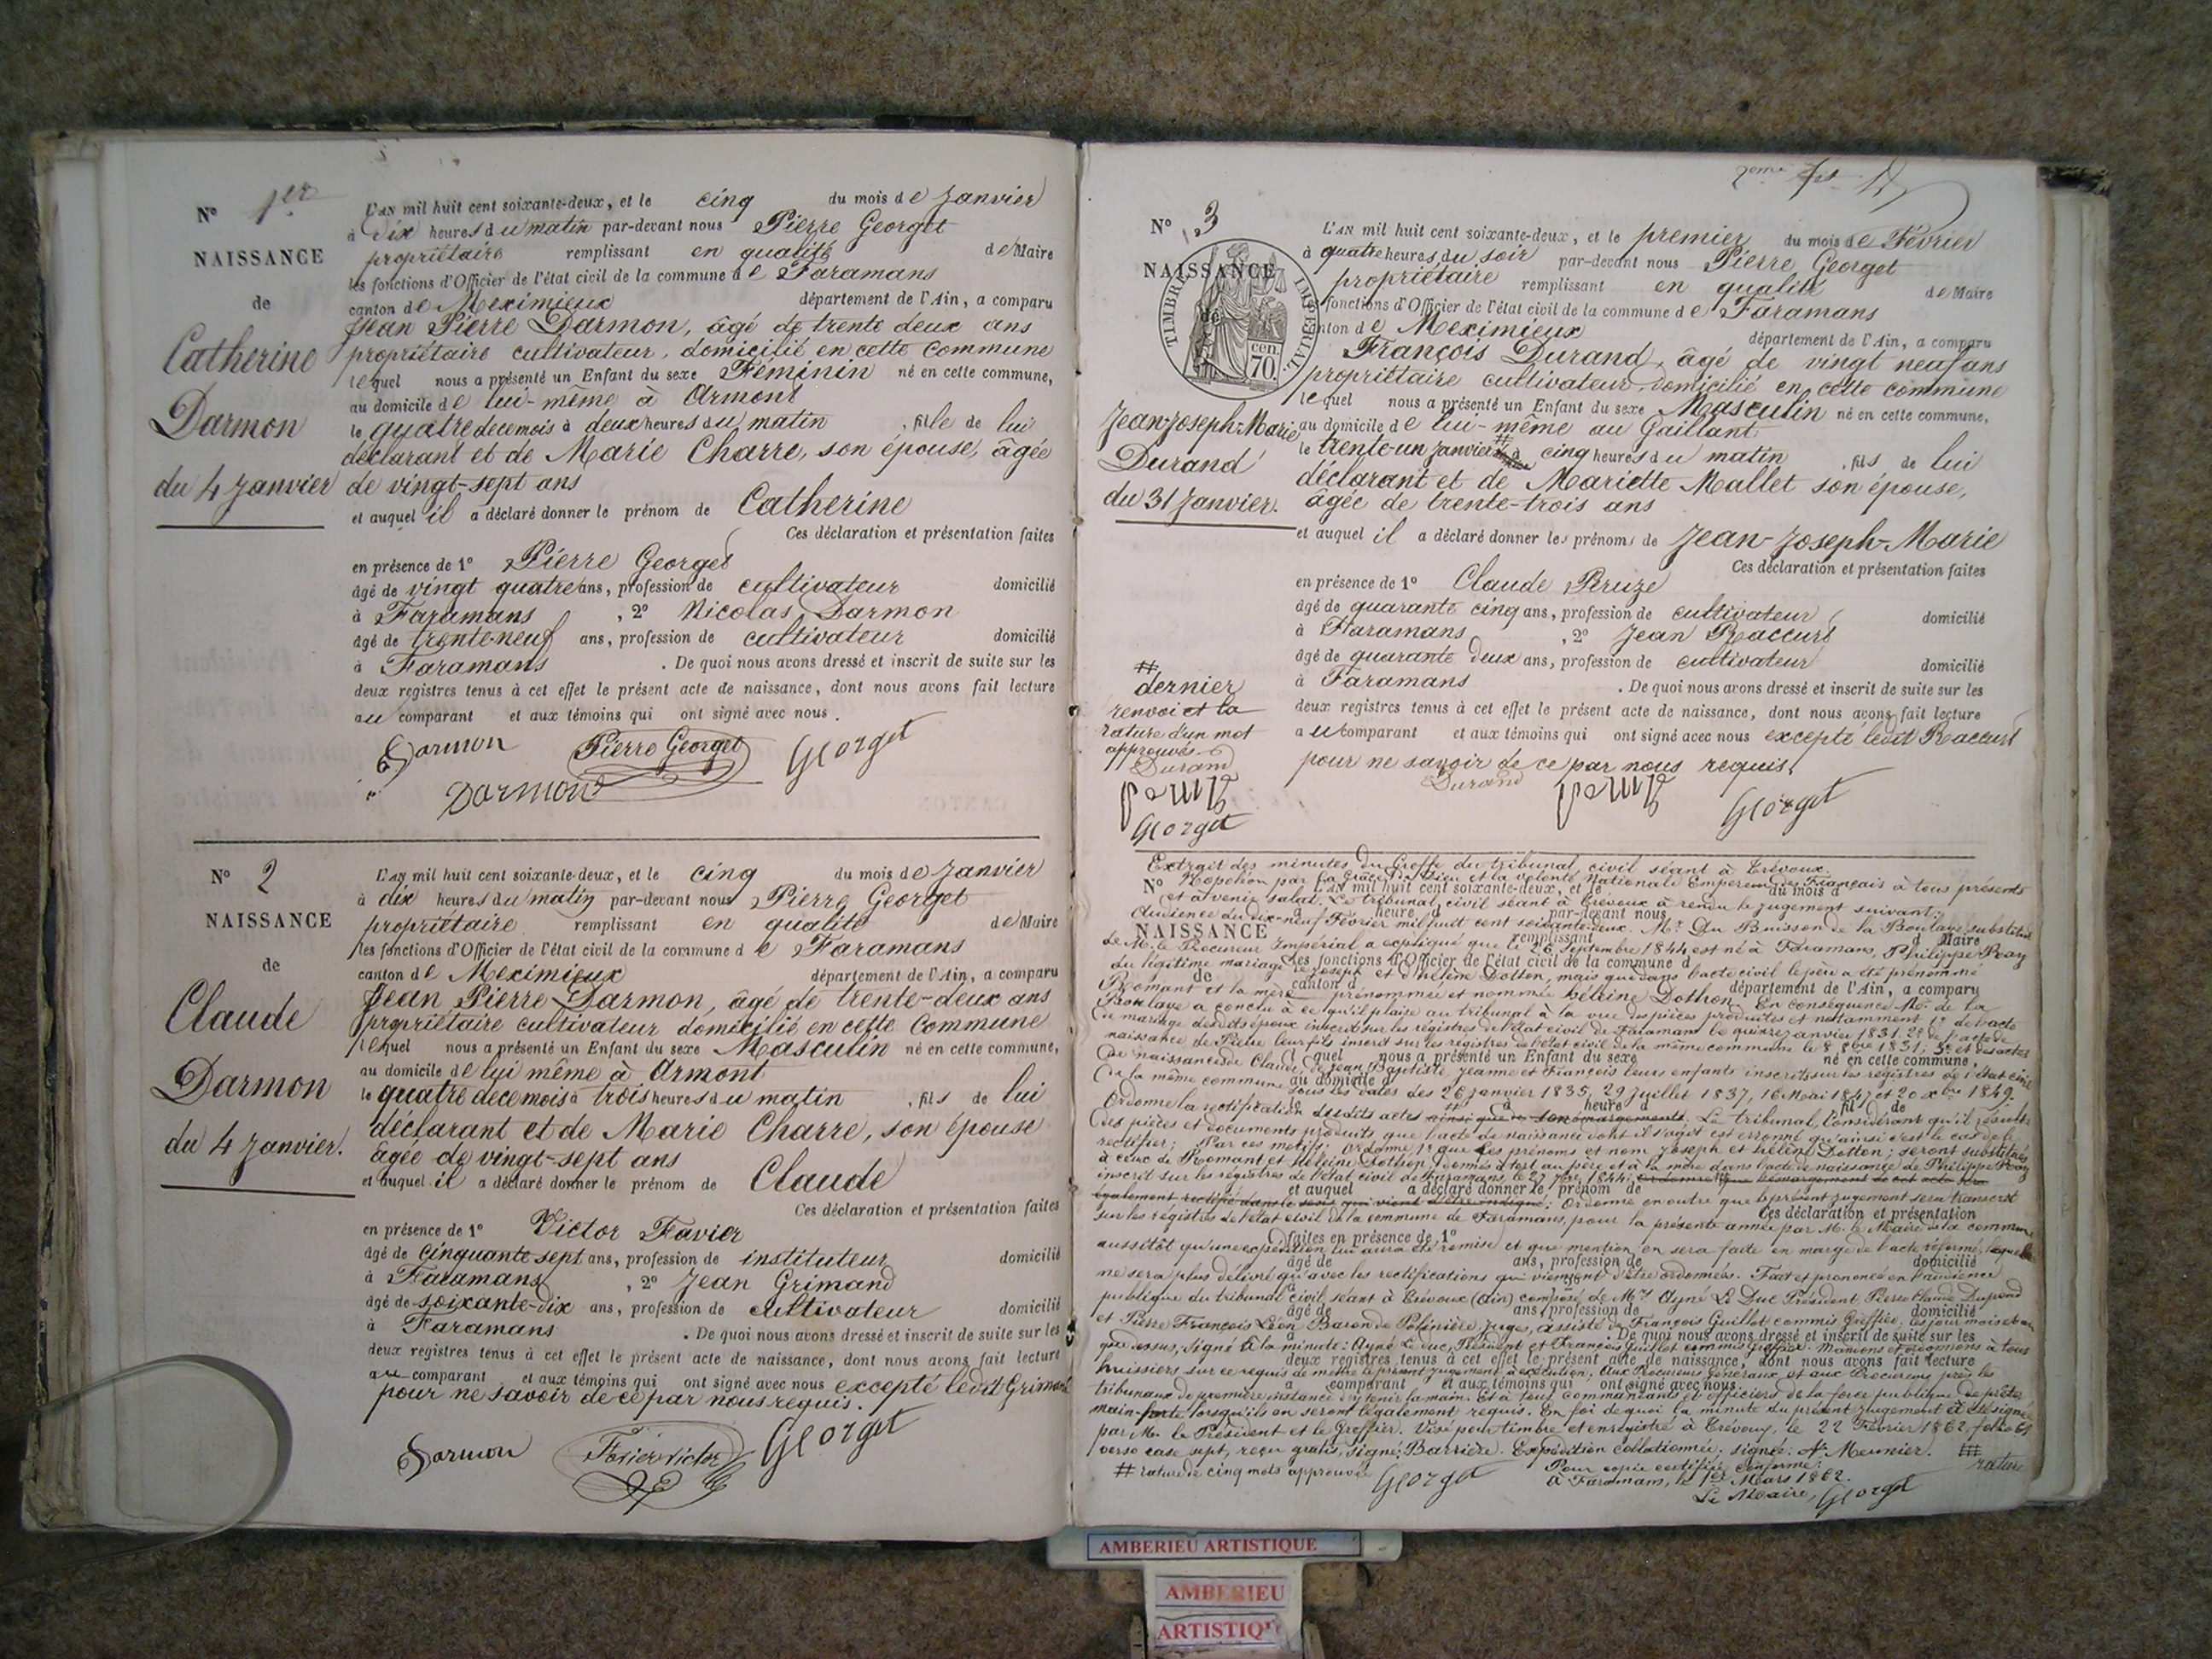 N° 1er
NAISSANCE
de
Catherine
Darmon
du 4 Janvier
L'AN mil huit cent soixante-deux, et le cinq du mois de Janvier
à dix heures du matin par-devant nous Pierre Georget
propriétaire remplissant en qualité de Maire
les fonctions d'Officier de l'état civil de la commune de Faramans
canton de Meximieux département de l'Ain, a comparu
Jean Pierre Darmon, âgé de trente deux ans
propriétaire cultivateur, domicilié en cette commune
lequel nous a présenté un Enfant du sexe Féminin né en cette commune,
au domicile de lui-même à Ormont
le quatre de ce mois à deux heures du matin, fille de lui
déclarant et de Marie Charre, son épouse, âgée
de vingt-sept ans
et auquel il a déclaré donner le prénom de Catherine
Ces déclaration et présentation faites
en présence de 1° Pierre Georget
âgé de vingt quatre ans, profession de cultivateur domicilié
à Faramans, 2° Nicolas Darmon
âgé de trente-neuf ans, profession de cultivateur domicilié
à Faramans. De quoi nous avons dressé et inscrit de suite sur les
deux registres tenus à cet effet le présent acte de naissance, dont nous avons fait lecture
au comparant et aux témoins qui ont signé avec nous.
Darmon Pierre Georget Georget
Darmon
N° 2
NAISSANCE
de
Claude
Darmon
du 4 Janvier.
L'AN mil huit cent soixante-deux, et le cinq du mois de Janvier
à dix heures du matin par-devant nous Pierre Georget
propriétaire remplissant en qualité de Maire
les fonctions d'Officier de l'état civil de la commune de Faramans
canton de Meximieux département de l'Ain, a comparu
Jean Pierre Darmon, âgé de trente-deux ans
propriétaire cultivateur domicilié en cette Commune
lequel nous a présenté un Enfant du sexe Masculin né en cette commune,
au domicile de lui même à Ormont
le quatre de ce mois à trois heures du matin, fils de lui
déclarant et de Marie Charre, son épouse
âgée de vingt-sept ans
et auquel il a déclaré donner le prénom de Claude
Ces déclaration et présentation faites
en présence de 1° Victor Favier
âgé de cinquante sept ans, profession de instituteur domicilié
à Faramans, 2° Jean Grimand
âgé de soixante-dix ans, profession de cultivateur domicilié
à Faramans. De quoi nous avons dressé et inscrit de suite sur les
deux registres tenus à cet effet le présent acte de naissance, dont nous avons fait lecture
au comparant et aux témoins qui ont signé avec nous excepté ledit Grimand
pour ne savoir de ce par nous requis.
Darmon Favier victor Georget
2eme
N° 3
NAISSANCE
de
TIMBRE IMPERIAL
cen. 70.
Jean-Joseph-Marie
Durand
du 31 Janvier.
L'AN mil huit cent soixante-deux, et le premier du mois de Février
à quatre heures du soir par-devant nous Pierre Georget
propriétaire remplissant en qualité de Maire
fonctions d'Officier de l'état civil de la commune de Faramans
canton de Meximieux département de l'Ain, a comparu
François Durand, âgé de vingt neuf ans
propriétaire cultivateur, domicilié en cette commune
lequel nous a présenté un Enfant du sexe Masculin né en cette commune,
au domicile de lui-même au Gaillant
le trente-un janvier # à cinq heures du matin, fils de lui
déclarant et de Mariette Mallet son épouse,
âgée de trente-trois ans
et auquel il a déclaré donner les prénoms de Jean-Joseph-Marie
Ces déclaration et présentation faites
en présence de 1° Claude Pruze
âgé de quarante cinq ans, profession de cultivateur domicilié
à Faramans, 2° Jean Raccurt
âgé de quarante deux ans, profession de cultivateur domicilié
à Faramans. De quoi nous avons dressé et inscrit de suite sur les
deux registres tenus à cet effet le présent acte de naissance, dont nous avons fait lecture
au comparant et aux témoins qui ont signé avec nous excepté ledit Raccurt
pour ne savoir de ce par nous requis.
Durand Georget
# dernier
renvoi et la
rature d'un mot
approuvés
Durand
Georget
Extrait des minutes du Greffe du tribunal civil séant à Trévoux.
N° Napoléon par la Grâce de Dieu et la volonté Nationale Empereur des Français à tous présents
L'AN mil huit cent soixante-deux, et le du mois d
et à venir salut. Le tribunal civil séant à Trévoux a rendu le jugement suivant:
à heure d par-devant nous
Audience du dix-neuf Février mil huit cent soixante-deux. Mr. Du Buisson de la Boulaye, substitut
NAISSANCE remplissant d Maire
de M. le Procureur Impérial a expliqué que le 26 Septembre 1844 est né à Faramans, Philippe Peay
les fonctions d'Officier de l'état civil de la commune d
du légitime mariage de Joseph et d'hélène Dotton, mais que dans l'acte civil le père a été prénommé
de canton d département de l'Ain, a comparu
Romant et la mère prénommée et nommée héleine Dothon. En conséquence Mr. de la
Boulaye a conclu à ce qu'il plaise au tribunal à la vue des pièces produites et notamment 1° de l'acte
de mariage desdits époux inscrit sur les registres de l'état civil de Faramans le quinze janvier 1831. 2° de l'acte de
naissance de Pierre leur fils inscrit sur les registres de l'état civil de la même commune le 8 8bre 1831; 3° et des actes
l quel nous a présenté un Enfant du sexe né en cette commune,
de naissance de Claude, de Jean Baptiste, Jeanne et François leurs enfants inscrits sur les registres de l'état civil
au domicile d
de la même commune sous les dates des 26 janvier 1835, 29 Juillet 1837, 16 Mai 1847 et 20 xbre 1849.
à heure d fil de
Ordonne la rectification desdits actes ainsi que de son émargement. Le tribunal, Considérant qu'il résulte
des pièces et documents produits que l'acte de naissance dont il s'agit est erronné qu'ainsi c'est le cas de le
rectifier; Par ces motifs: Ordonne 1° que les prénoms et nom Joseph et hélène Dotton; seront substitués
à ceux de Romant et héleine Dothon, donnés à tort au père et à la mère dans l'acte de naissance de Philippe Peay
inscrit sur les registres de l'état civil de Faramans, le 27 7bre 1844;
et auquel a déclaré donner le prénom de
également rectifié dans le sens qui vient d'être indiqué; Ordonne en outre que le présent jugement sera transcrit
Ces déclaration et présentation
sur les registres de l'état civil de la commune de Faramans, pour la présente année par M. le Maire de la commune
faites en présence de 1°
aussitôt qu'une expédition lui aura été remise et que mention en sera faite en marge de l'acte réformé, lequel
âgé de ans, profession de domicilié
ne sera plus délivré qu'avec les rectifications qui viennent d'être ordonnées. Fait et prononcé en l'audience
publique du tribunal civil séant à Trévoux (Ain) composé de Mrs Ayné Le Duc Président Pierre Claude Dupond
âgé de ans, profession de domicilié
et Pierre François Léon Baron de Polinière, Juges, assisté de François Guillot commis Greffier, les jour mois et an
. De quoi nous avons dressé et inscrit de suite sur les
que dessus, signé à la minute: Ayné Le Duc, Président et François Guillot commis greffier. Mandons et ordonnons à tous
deux registres tenus à cet effet le présent acte de naissance, dont nous avons fait lecture
huissiers sur ce requis de mettre le présent jugement à exécution; Aux Procureurs Généraux et aux Procureurs près les
comparant et aux témoins qui ont signé avec nous.
tribunaux de première instance d'y tenir la main. Et à tous commandants et officiers de la force publique de prêter
main-forte lorsqu'ils en seront légalement requis. En foi de quoi la minute du présent jugement a été signée
par M. le Président et le Greffier. Visé pour timbre et enregistré à Trévoux, le 22 Février 1862, folio 61
verso case sept, reçu gratis, signé: Barrière. Expédition collationnée: signée: Meunier.
# rature de cinq mots approuvée Georget
Pour copie certifiée conforme:
à Faramans, le 1er Mars 1862.
Le Maire, Georget
rature
AMBERIEU ARTISTIQUE
AMBERIEU
ARTISTIQUE